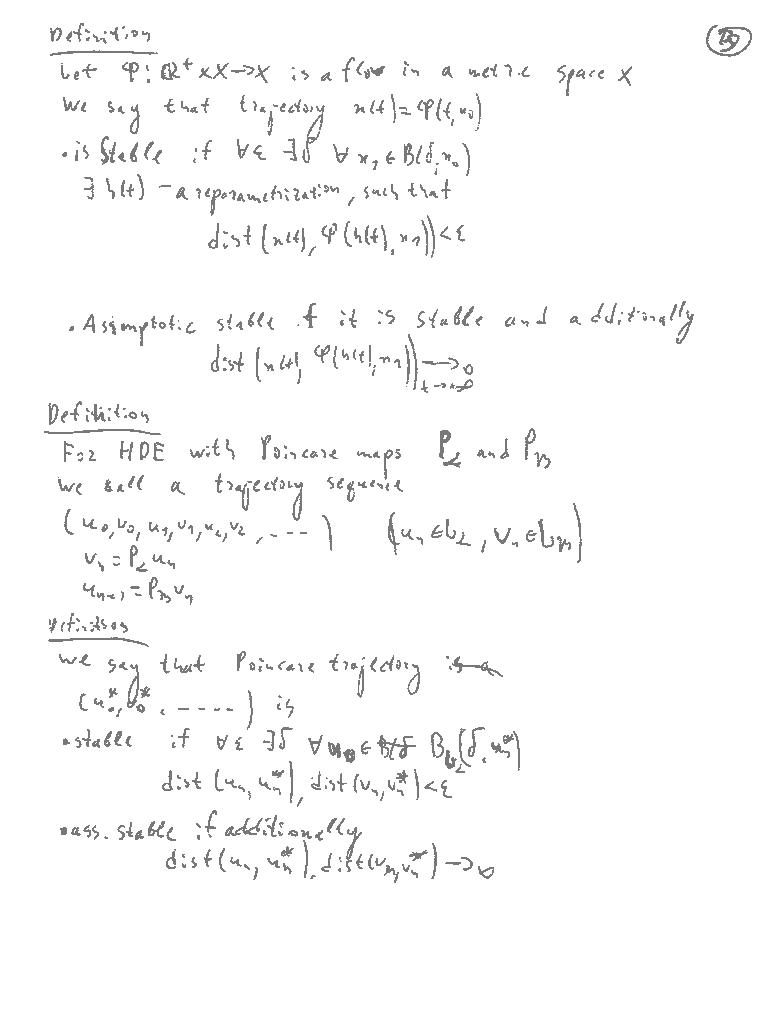 Definition
Let φ: ℝ⁺ x X → X is a flow in a metric space X
We say that trajectory x(t) = φ(t, x₀)
• is stable if ∀ε ∃δ ∀ x₁ ∈ B(δ, x₀)
∃ h(t) – a reparametrization, such that
dist (x(t), φ(h(t), x₁)) < ε
• Asimptotic stable if it is stable and additionally
dist (x(t), φ(h(t), x₁)) → 0
t → ∞
Definition
For HDE with Poincare maps P_α and P_β
we call a trajectory sequence
(u₀, v₀, u₁, v₁, u₂, v₂, . - - - ) (uₙ ∈ L_α, vₙ ∈ L_β)
vₙ = P_α uₙ
uₙ₊₁ = P_β vₙ
Definition
We say that Poincare trajectory is a
(u₀*, v₀*, - - - - ) is
• stable if ∀ε ∃δ ∀u₀ ∈ B(δ B_{L_α}(δ, u₀*)
dist (uₙ, uₙ*), dist (vₙ, vₙ*) < ε
• ass. stable if additionally
dist (uₙ, uₙ*), dist (vₙ, vₙ*) → 0